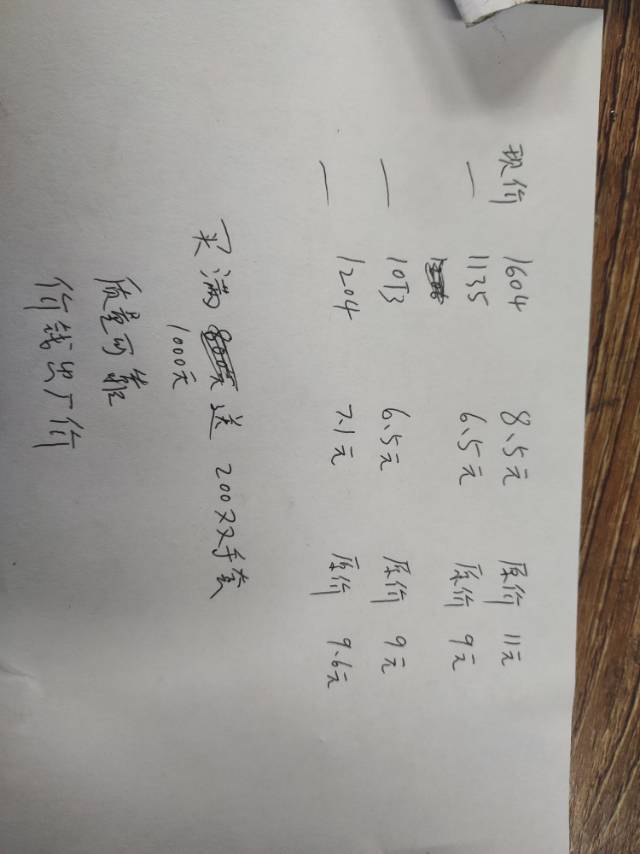 现价 1604 8.5元 原价 11元
一 1135 6.5元 原价 9元
一 10T3 6.5元 原价 9元
一 1204 7.1元 原价 9.6元
买满 1000元 送 200双手套
质量可靠
价钱出厂价